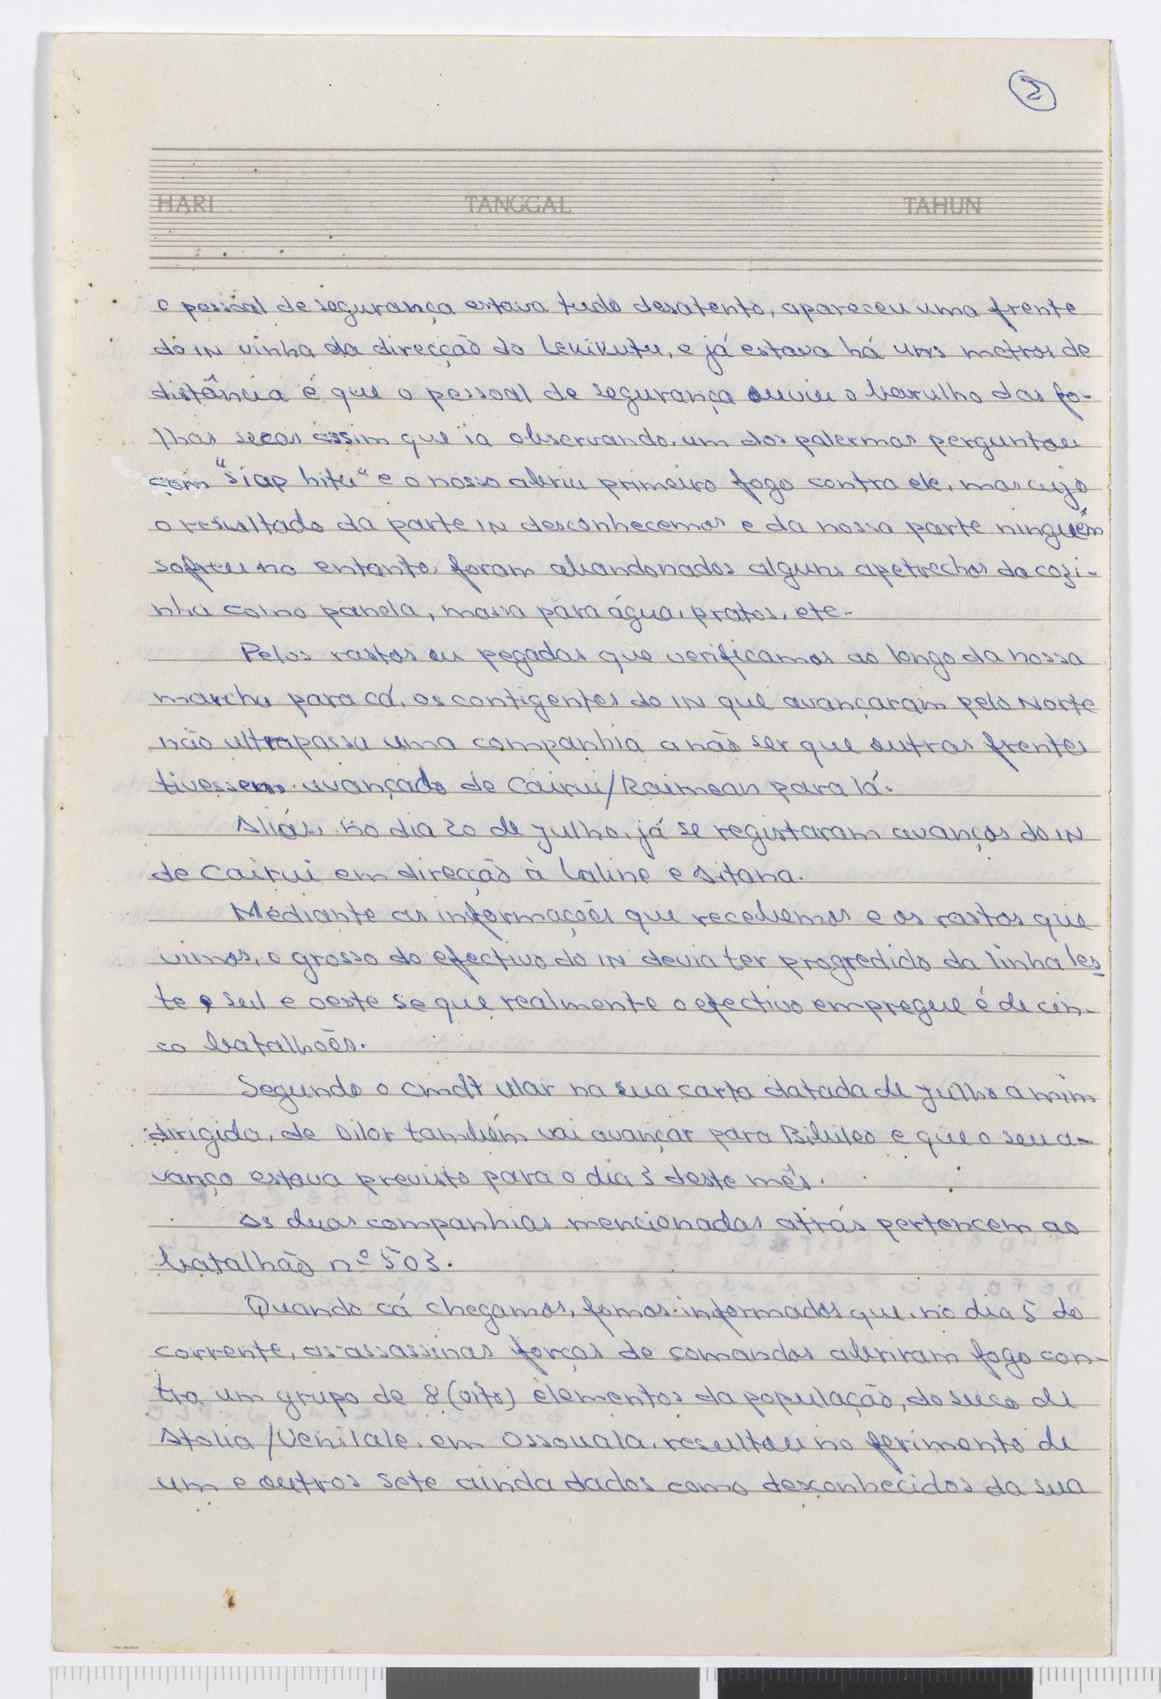 2
HARI TANGGAL TAHUN
o pessoal de segurança estava tudo desatento, apareceu uma frente
do IN vinha da direcção do Lekikutu, e já estava há uns metros de
distância é que o pessoal de segurança ouviu o barulho das fo-
lhas secas assim que ia observando, um dos palermas perguntou
com "siap hitu" e o nosso abriu primeiro fogo contra ele, mas cujo
o resultado da parte IN desconhecemos e da nossa parte ninguém
sofreu no entanto, foram abandonados alguns apetrechos da cozi-
nha como panela, massa para água, pratos, etc.
Pelos rastos ou pegadas que verificamos ao longo da nossa
marcha para cá, os contigentes do IN que avançaram pelo Norte
não ultrapassa uma companhia a não ser que outras frentes
tivessem avançado de Cairui/Raimean para lá.
Aliás, no dia 20 de Julho, já se registaram avanços do IN
de Cairui em direcção à Laline e Sitana.
Mediante as informações que recebemos e os rastos que
vimos, o grosso do efectivo do IN devia ter progredido da linha les-
te, sul e oeste se que realmente o efectivo empregue é de cin-
co batalhões.
Segundo o Cmdt Ular na sua carta datada de Julho a mim
dirigida, de Dilor também vai avançar para Bibileo e que o seu a-
vanço estava previsto para o dia 3 deste mês.
As duas companhias mencionadas atrás pertencem ao
batalhão nº 503.
Quando cá chegamos, fomos informados que, no dia 5 do
corrente, as assassinas forças de comandos abriram fogo con-
tra um grupo de 8 (oito) elementos da população, do suco de
Atolia/Venilale, em Ossouala, resultou no ferimento de
um e outros sete ainda dados como desconhecidos da sua